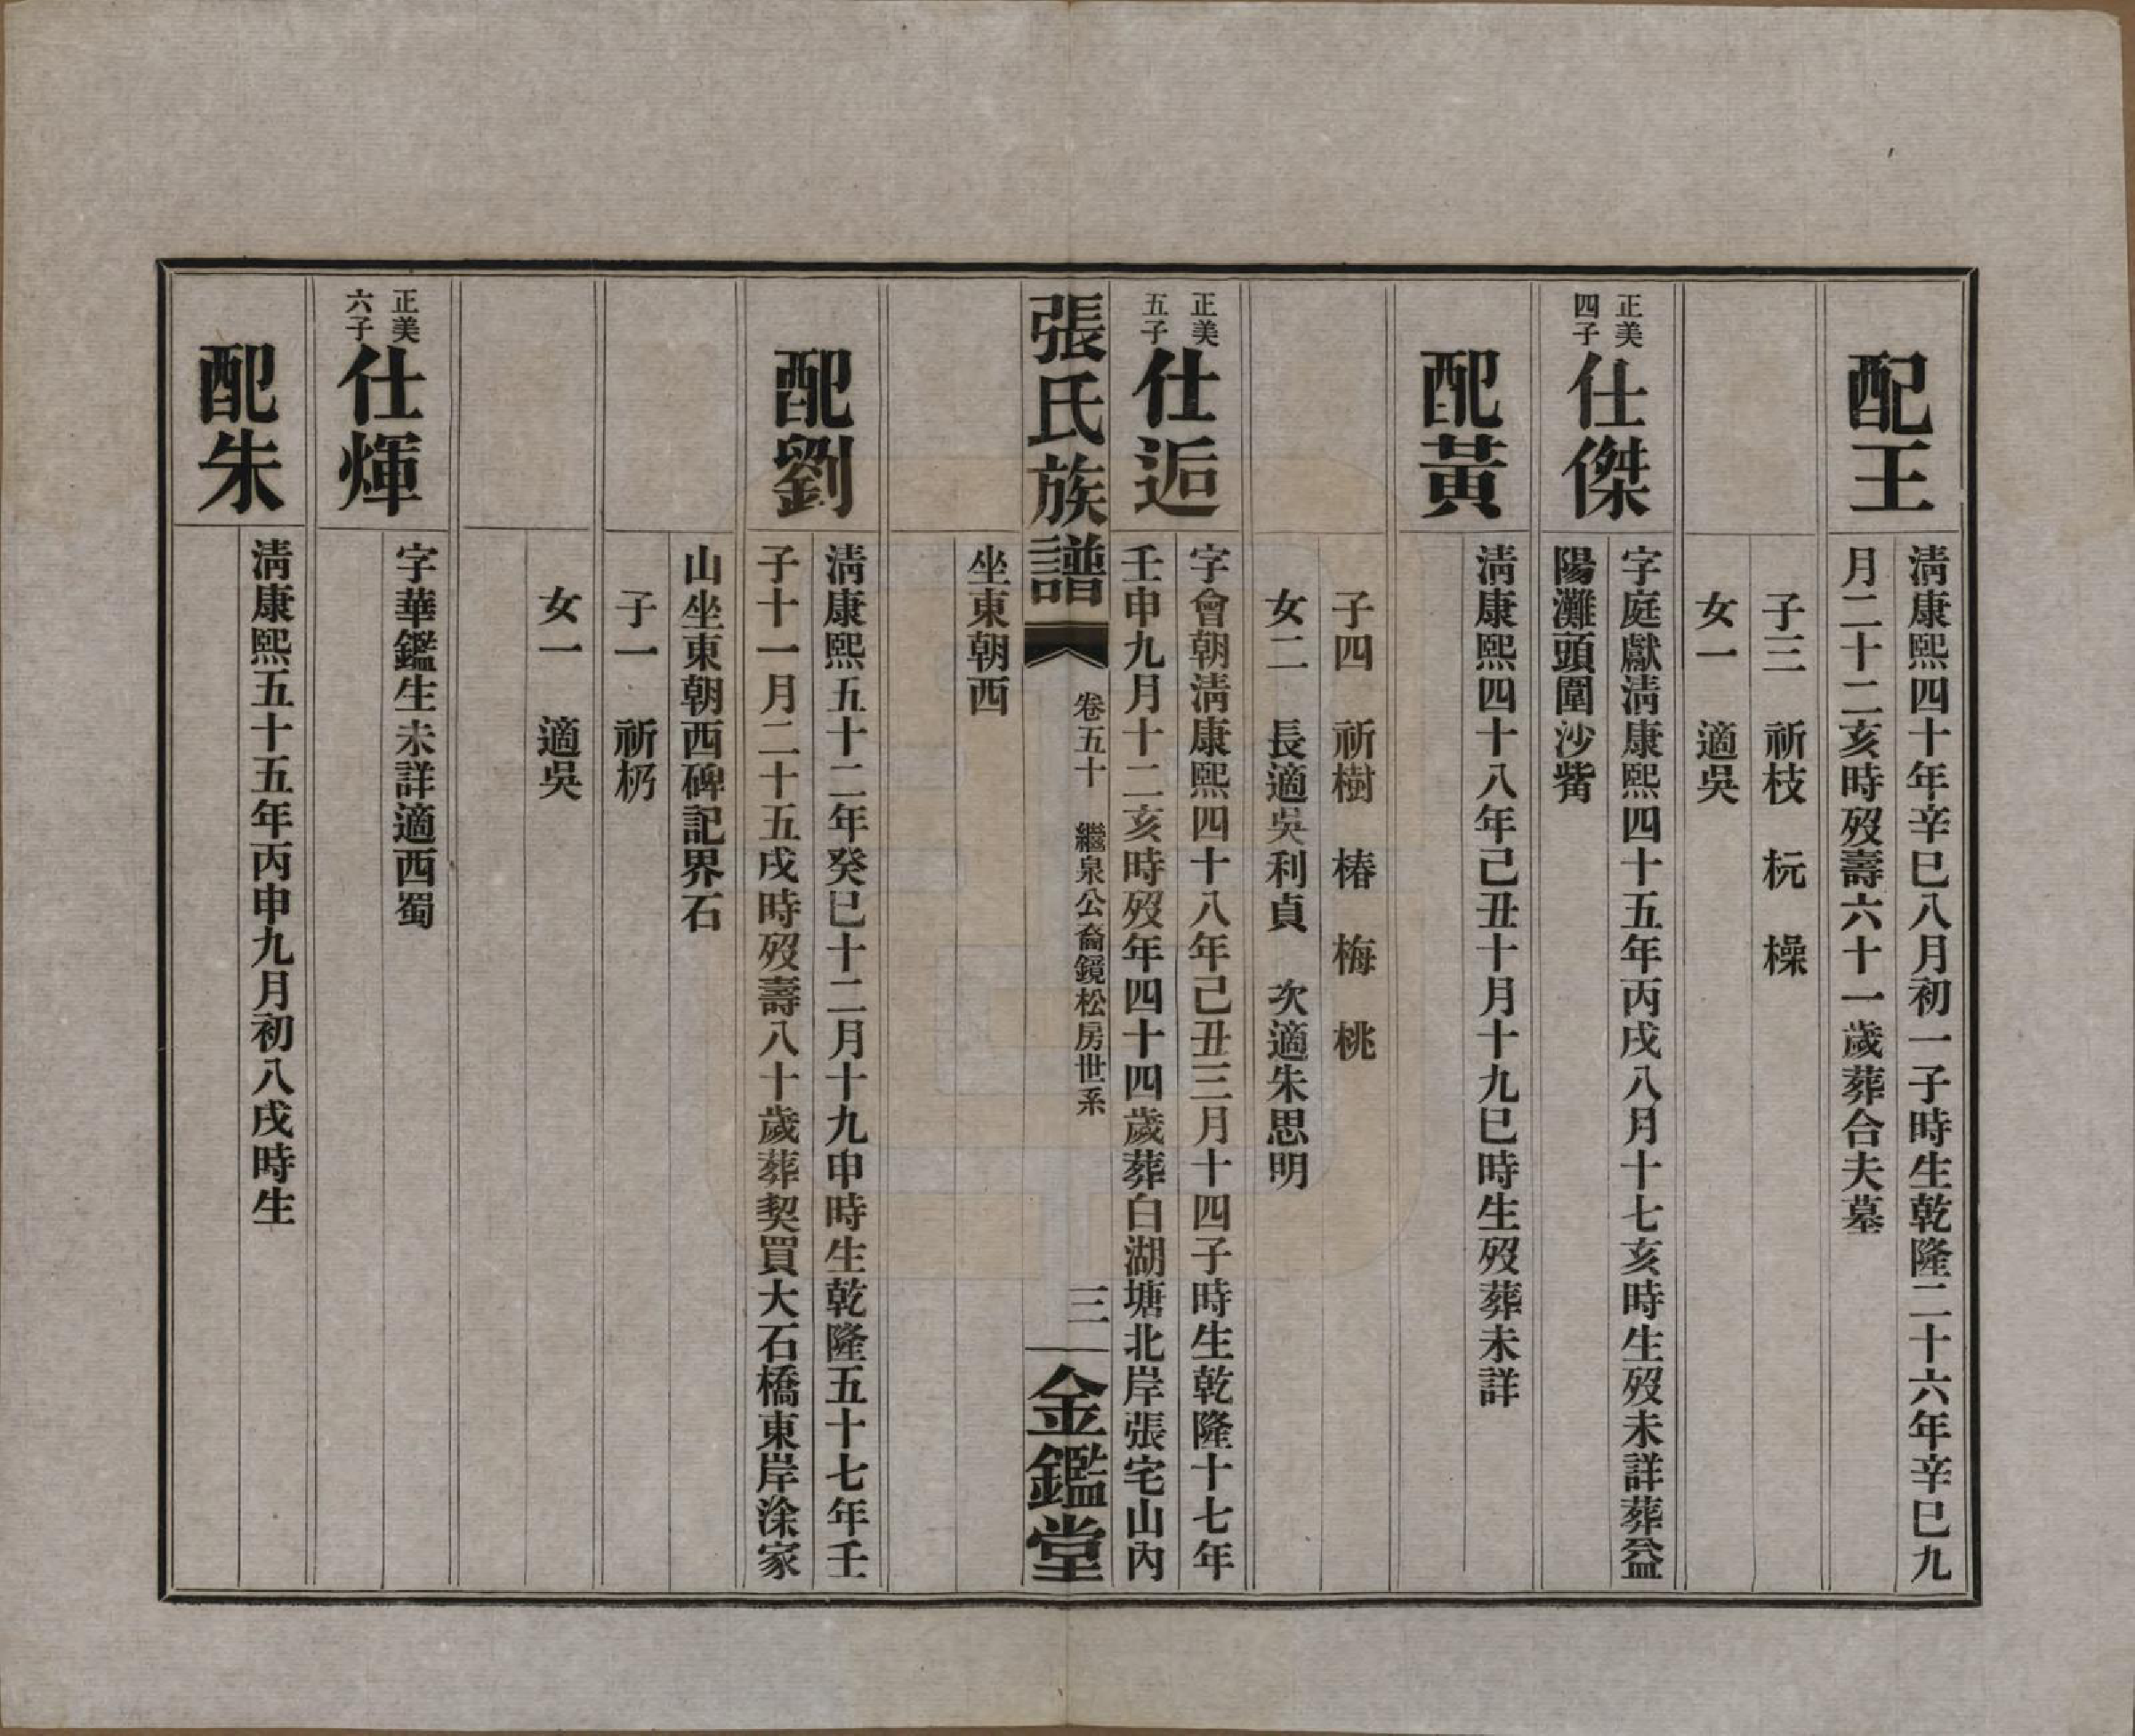 配王
清康熙四十年辛巳八月初一子時生乾隆二十六年辛巳九
月二十二亥時歿壽六十一歲葬合夫墓
子三　祈枝　杬　橾
女一　適吳
正美
四子
仕傑
字庭獻清康熙四十五年丙戌八月十七亥時生歿未詳葬益
陽灘頭圍沙觜
配黃
清康熙四十八年己丑十月十九巳時生歿葬未詳
子四　祈樹　椿　梅　桃
女二　長適吳利貞　次適朱思明
正美
五子
仕逅
字會朝清康熙四十八年己丑三月十四子時生乾隆十七年
壬申九月十二亥時歿年四十四歲葬白湖塘北岸張宅山內
張氏族譜
卷五十　繼泉公裔鏡松房世系
三
金鑑堂
坐東朝西
配劉
清康熙五十二年癸巳十二月十九申時生乾隆五十七年壬
子十一月二十五戌時歿壽八十歲葬契買大石橋東岸涂家
山坐東朝西碑記界石
子一　祈杤
女一　適吳
正美
六子
仕煇
字華鑑生未詳適西蜀
配朱
清康熙五十五年丙申九月初八戌時生